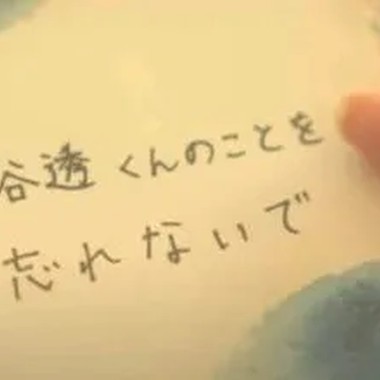 谷透くんのことを
忘れないで